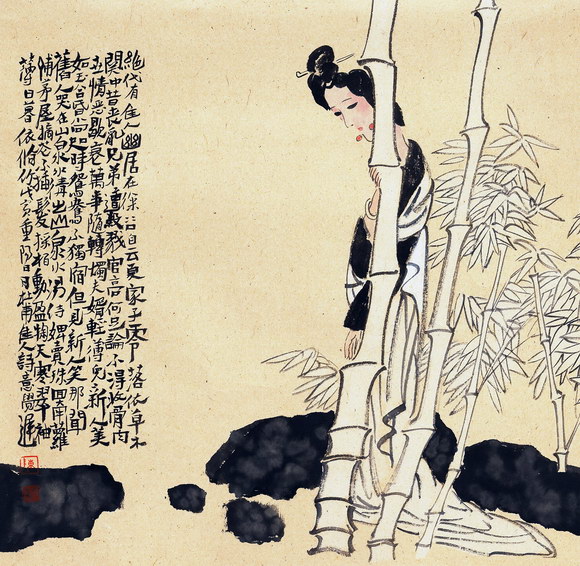 絶代有佳人幽居在深谷自云良家子零落依草木
関中昔喪亂兄弟遭殺戮官高何足論不得收骨肉
世情惡歇衰萬事隨轉燭夫婿輕薄兒新人美
如玉合昏尚知時鴛鴦不獨宿但見新人笑那聞
舊人哭在山泉水清出山泉水濁侍婢賣珠回牽蘿
補茅屋摘花不插髮採柏動盈掬天寒翠袖
薄日暮依脩竹亥重陽日杜甫佳人詩意覺遲